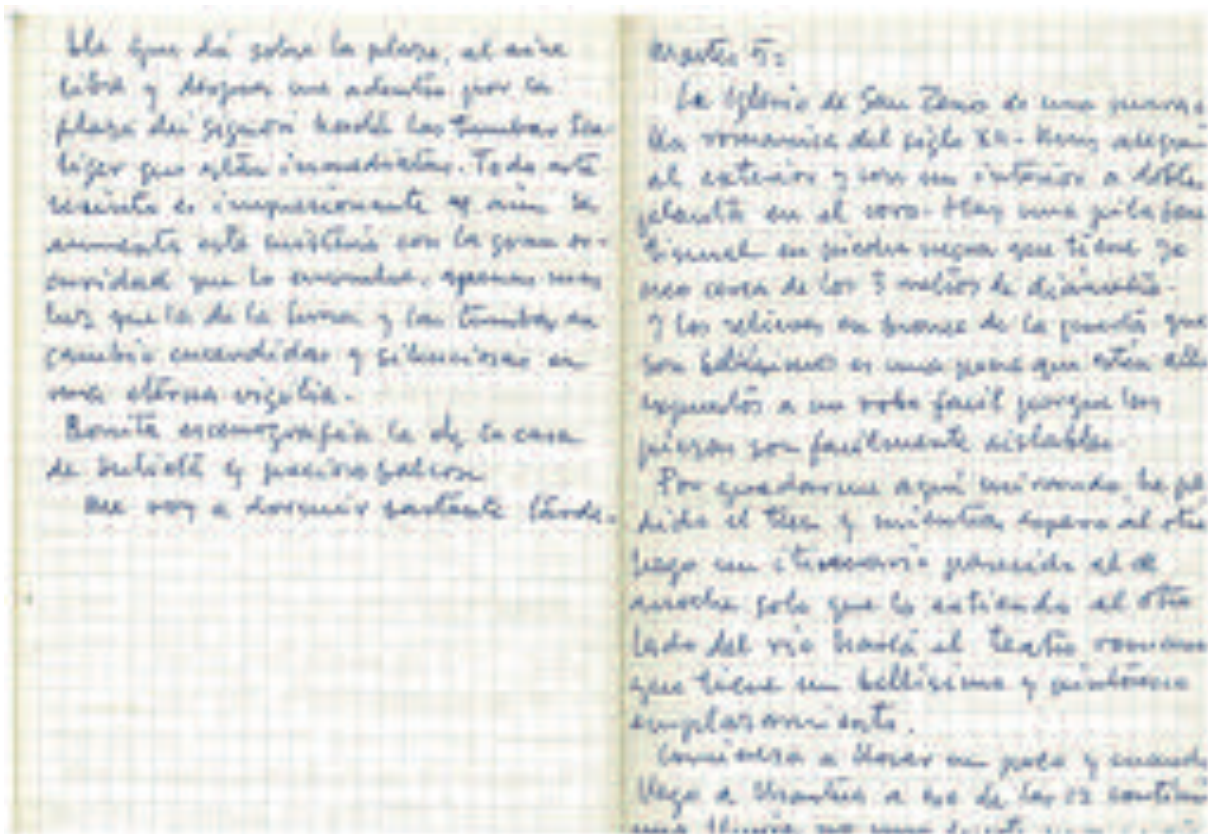 ble que dá sobre la plaza, al aire
libre y despues me adentro por la
plaza dei Signori hasta las tumbas Sca-
liger que están inmediatas. Todo este
recinto es impresionante y aún se
aumenta este misterio con la gran os-
curidad que lo envuelve, apenas mas
luz que la de la luna y las tumbas en
cambio encendidas y silenciosas en
una eterna vigilia.
Bonita escenografia la de la casa
de Julieta y precioso balcon
Me voy a dormir bastante tarde.
Martes 5:
La Iglesia de San Zeno es una marav
lla romanica del siglo XII. Muy alegre
al exterior y con un interior a doble
planta en el coro. Hay una pila bau
tismal en piedra negra que tiene yo
creo cerca de los 3 metros de diámetro.
Y los relieves en bronce de la puerta que
son bellisimos es una pena que estén alli
expuestos a un robo facil porque las
piezas son facilmente aislables.
Por quedarme aquí mirando, he pe
dido el tren y mientras espero al otro
hago un itinerario parecido al de
anoche solo que lo extiendo al otro
lado del rio hasta el teatro romano
que tiene un bellisimo y pintoresco
emplazamiento.
Comienza a llover un poco y cuando
llego a a eso de las 12 continua
una lluvia no muy